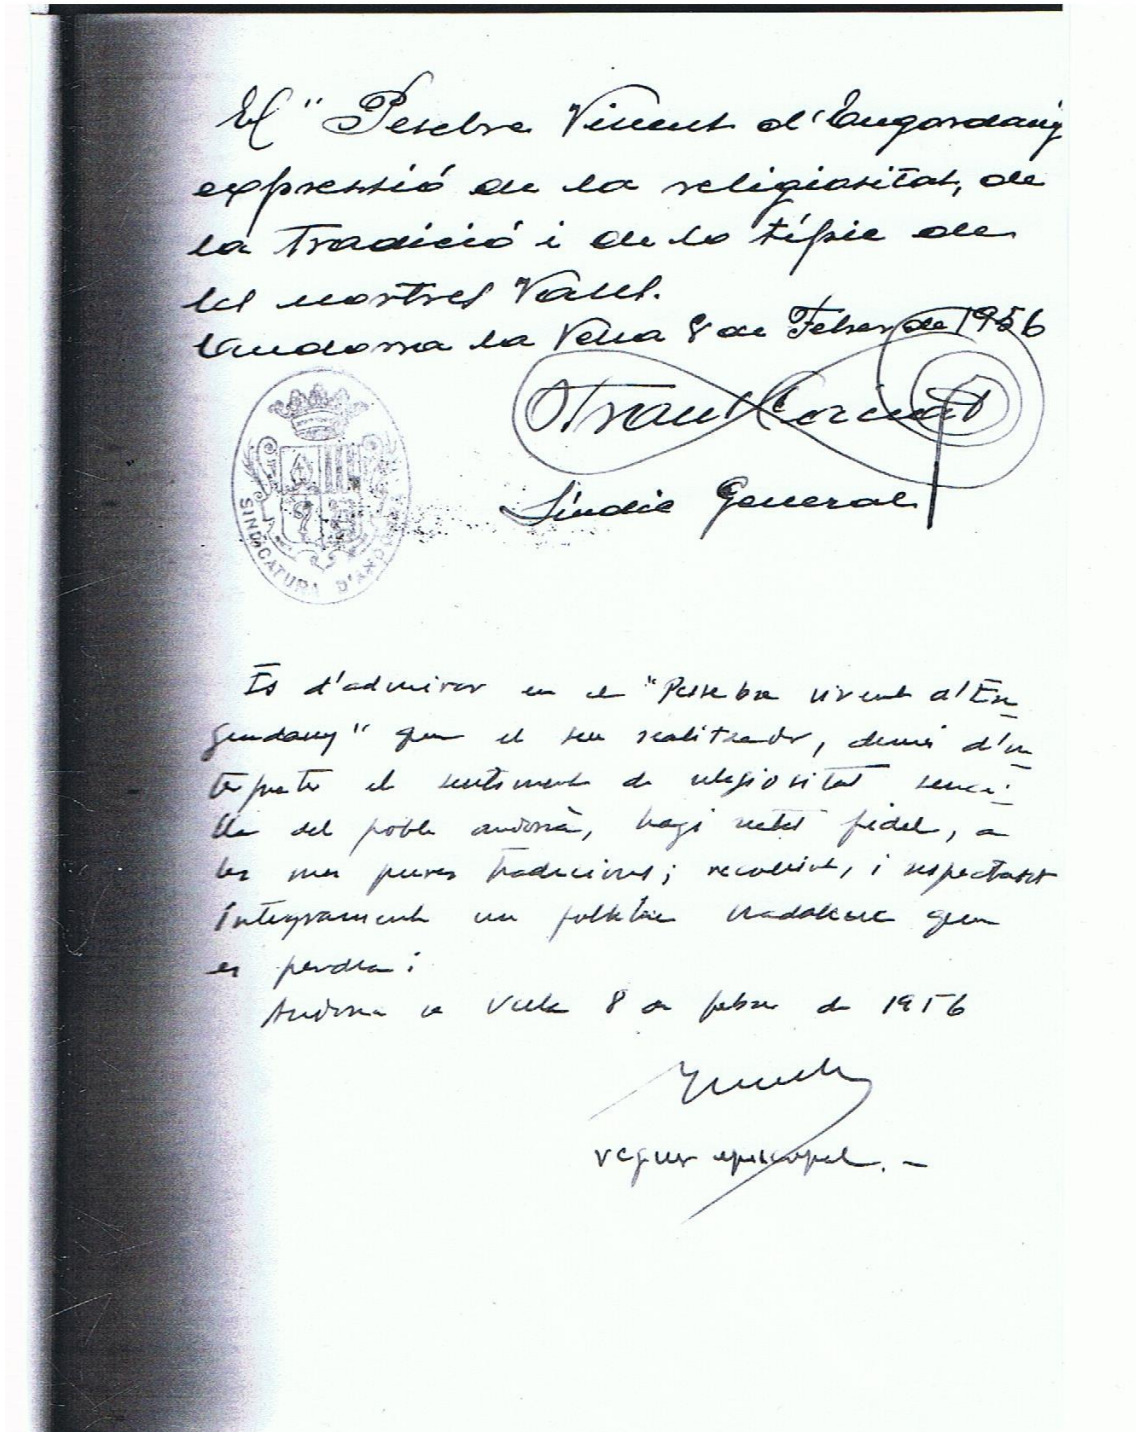 El "Pesebre Vivent d'Engordany
expressió de la religiositat, de
la Tradició i de lo típic de
les nostres Valls.
Andorra la Vella 8 de Febrer de 1956
Francesc Cairat
Síndic General
SINDICATURA D'ANDO
És d'admirar en el "Pessebre vivent d'En_
gordany" que el seu realitzador, demés d'in_
terpretar el sentiment de religiositat senzi_
lla del poble andorrà, hagi estat fidel, a
les mes pures tradicions; recollint, i respectant
íntegrament un folklore nadalenc que
es perdia;
Andorra la Vella 8 de febrer de 1956
veguer episcopal. -